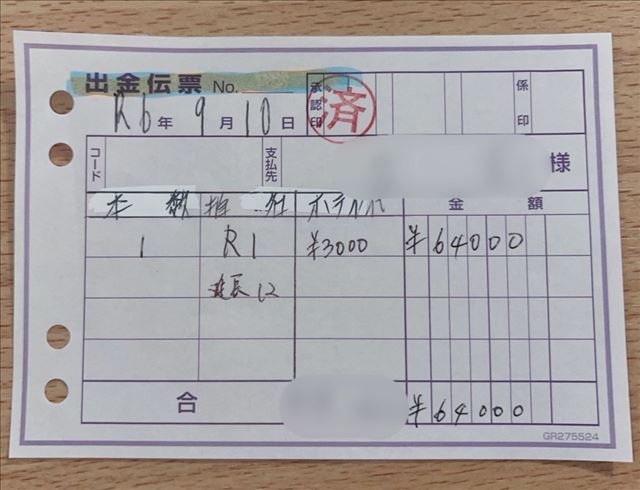 出金伝票 No.
R6年 9月 10日 承認印 済 係印
コード 支払先 様
本数 指 ホテル 金額
1 R1 ¥3000 ¥64000
延長12
合 ¥64000
GR275524